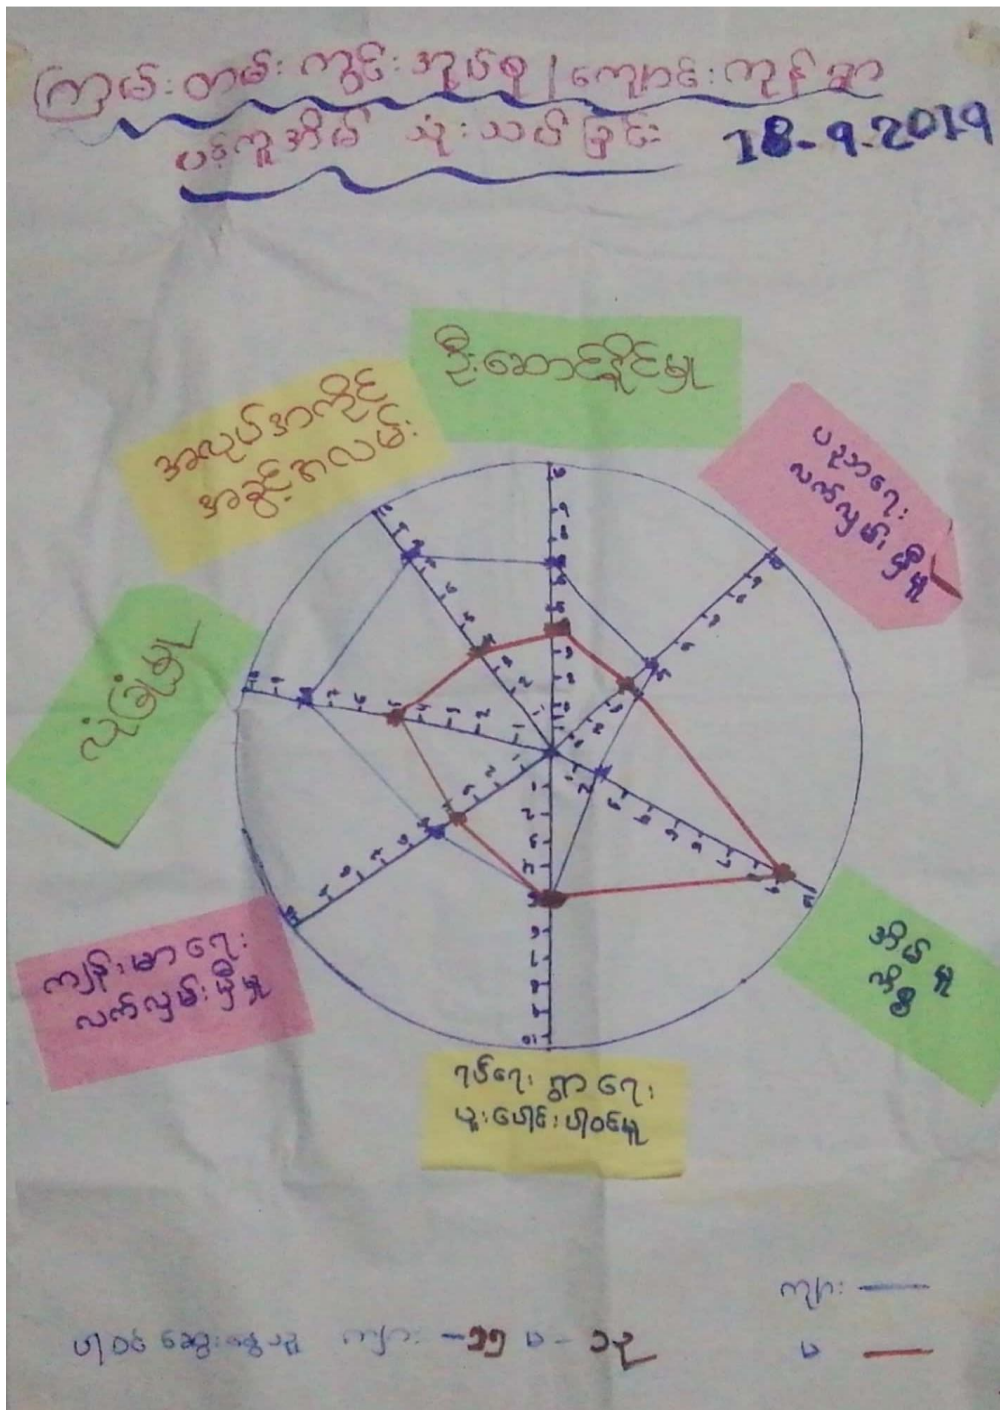 ကြမ်းတမ်းကွင်းအုပ်စု၊ ကျောင်းကုန်းရွာ
ပင့်ကူအိမ် သုံးသပ်ခြင်း 18-9-2019
ဦးဆောင်နိုင်မှု
အလုပ်အကိုင်
အခွင့်အလမ်း
ပညာရေး
လက်လှမ်းမှီမှု
လုံခြုံမှု
အိမ်မှု
ကိစ္စ
ကျန်းမာရေး
လက်လှမ်းမှီမှု
ရပ်ရေးရွာရေး
ပူးပေါင်းပါဝင်မှု
ကျား
ပါဝင်ဆွေးနွေးသူ ကျား - ၁၅ မ - ၁၃
မ